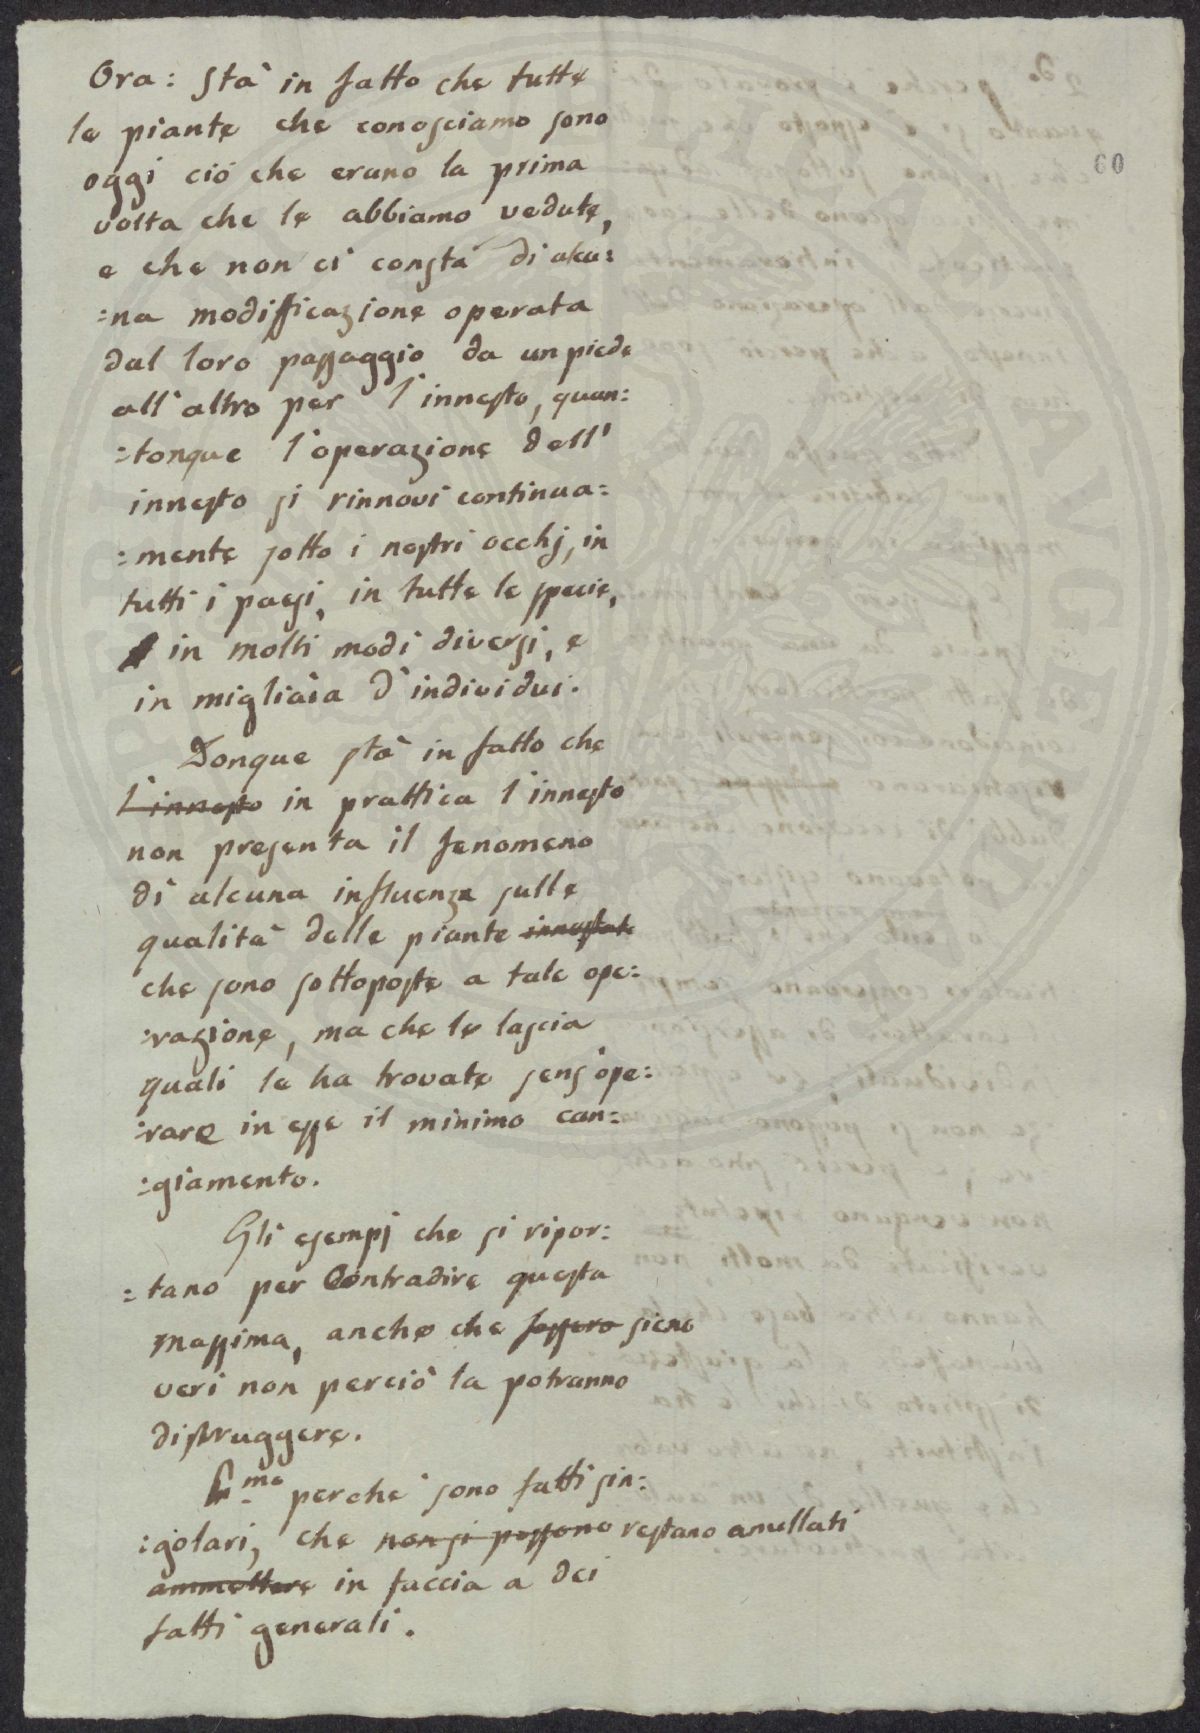 Ora: stà in fatto che tutte
le piante che conosciamo sono
oggi ciò che erano la prima
60
volta che le abbiamo vedute,
e che non ci consta di alcu:
:na modifficazione operata
dal loro passaggio da un piede
all'altro per l'innesto, quan:
:tonque l'operazione dell'
innesto si rinnovi continua:
:mente sotto i nostri occhj, in
tutti i paesi, in tutte le specie,
in molti modi diversi, e
in migliaia d'individui.
Donque stà in fatto che
l'innesto in prattica l'innesto
non presenta il fenomeno
di alcuna influenza sulle
qualità delle piante innestate
che sono sottoposte a tale ope:
:razione, ma che le lascia
quali le ha trovate senz'ope:
:rare in esse il minimo can:
:giamento.
Gli esempj che si ripor:
:tano per Contradire questa
massima, anche che fossero sieno
veri non perciò la potranno
distruggere.
perché sono fatti sin:
:golari, che non si possono restano anullati
ammettere in faccia a dei
fatti generali.